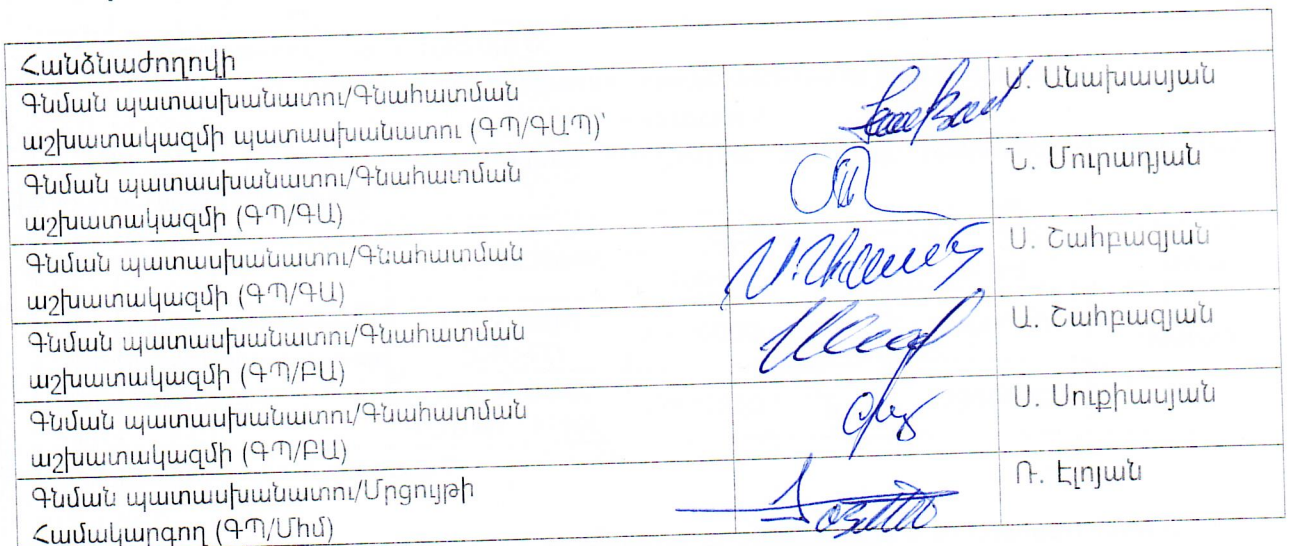 Հանձնաժողովի
Գնման պատասխանատու/Գնահատման
աշխատակազմի պատասխանատու (ԳՊ/ԳԱՊ)՝
Ս. Անախասյան
Գնման պատասխանատու/Գնահատման
աշխատակազմի (ԳՊ/ԳԱ)
Ն. Մուրադյան
Գնման պատասխանատու/Գնահատման
աշխատակազմի (ԳՊ/ԳԱ)
Ս. Շահբազյան
Գնման պատասխանատու/Գնահատման
աշխատակազմի (ԳՊ/ԲԱ)
Ա. Շահբազյան
Գնման պատասխանատու/Գնահատման
աշխատակազմի (ԳՊ/ԲԱ)
Ս. Սուքիասյան
Գնման պատասխանատու/Մրցույթի
Համակարգող (ԳՊ/Մհմ)
Ռ. Էլոյան